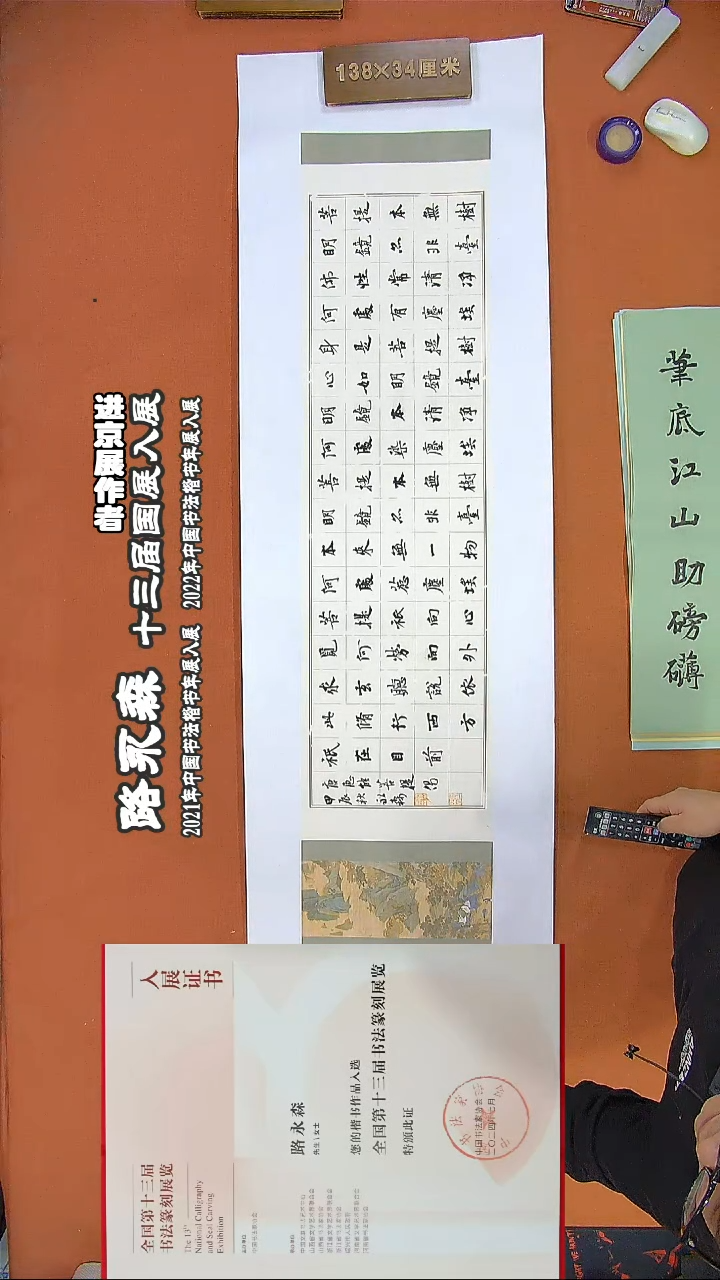 138×34厘米
菩提本無樹
明鏡亦非臺
佛性常清淨
何處有塵埃
身是菩提樹
心如明鏡臺
明鏡本清淨
何處染塵埃
菩提本無樹
明鏡亦非臺
本來無一物
何處惹塵埃
菩提祇向心
覓何勞向外
求玄聽說依
此脩行西方
祇在目前
唐惠能菩提偈
甲辰秋永森
筆底江山助磅礴
路永森 十三届国展入展
2021年中国书法楷书年展入展 2022年中国书法楷书年展入展
入展证书
全国第十三届
书法篆刻展览
The 13th
National Calligraphy
and Seal Carving
Exhibition
路永森
先生\女士
您的楷书作品入选
全国第十三届书法篆刻展览
特颁此证
中国书法家协会
二〇二四年七月